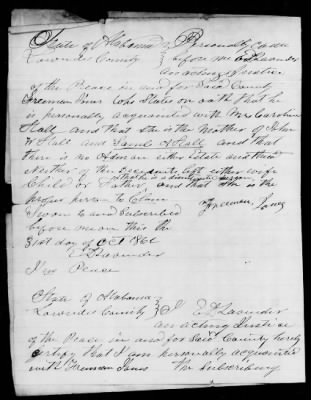 State of Alabama } Personally came
Lowndes County } before me E Lavender
an acting Justice
of the Peace in and for Said County
Freeman Jones who States on oath that he
is personally acquainted with Mrs Caroline
Hall and that She is the Mother of John
W Hall and Saml A Hall and that
there is no Admon either Estate and that
Neither of the decedents left either wife
Child or Father and that She is the
proper person to Claim
Sworn to and Subscribed Freeman Jones
before me this the
31st day of Oct 1862
E Lavender
Peace
State of Alabama }
Lowndes County } I E Lavender
an acting Justice
of the Peace in and for Said County hereby
certify that I am personally acquainted
with Freeman Jones the Subscribing